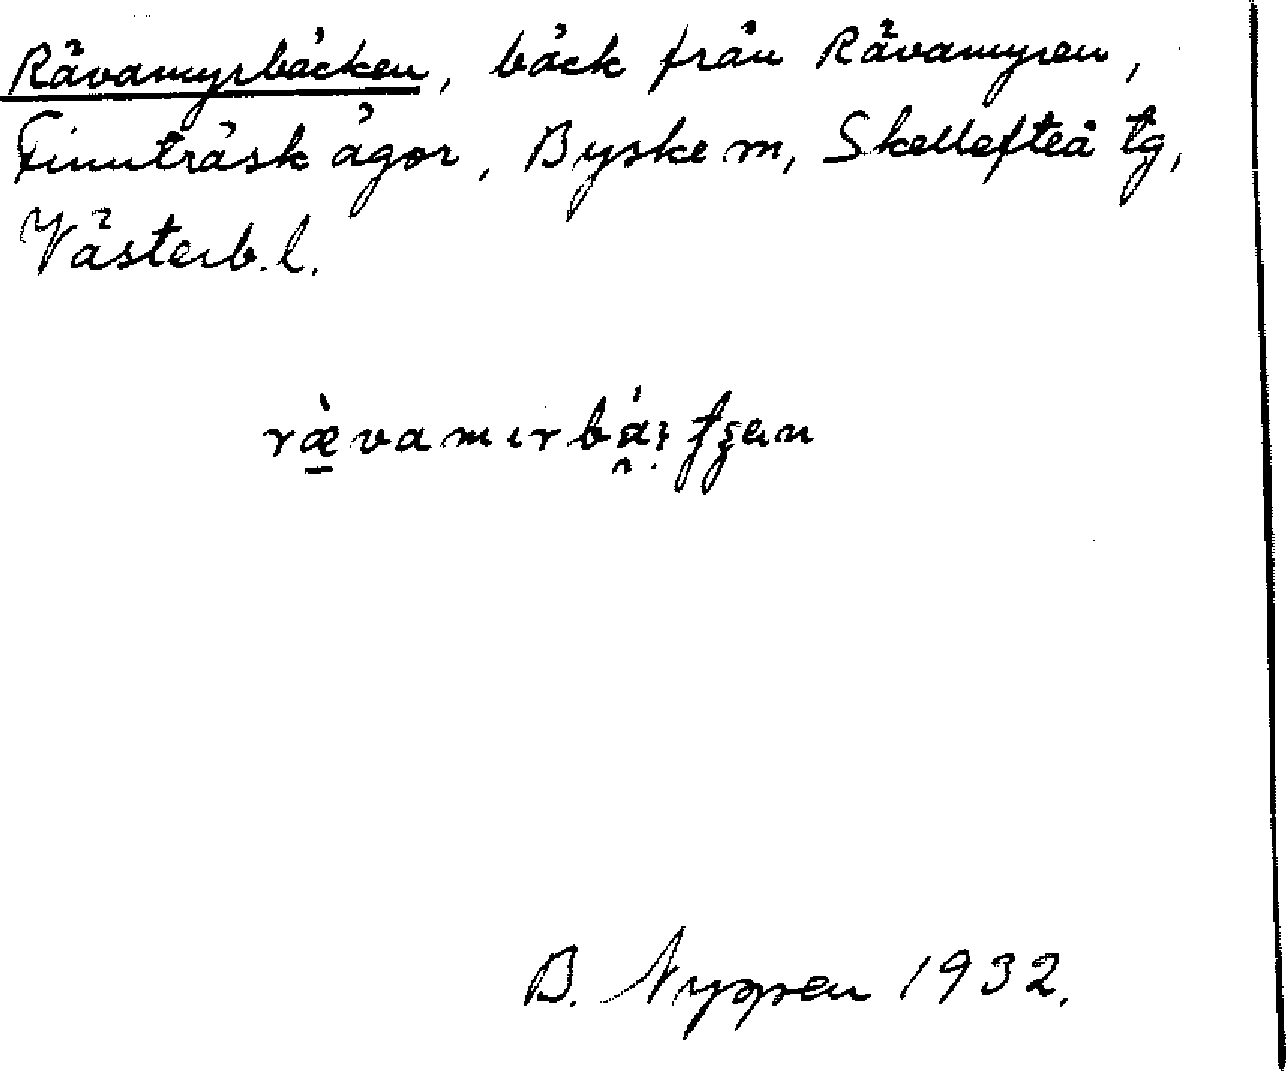 Rävamyrbäcken, bäck från Rävamyren,
Finnträsk ägor, Byske m, Skellefteå tg,
Västerb. l.
rævamırbä
B. Nyppen 1932.